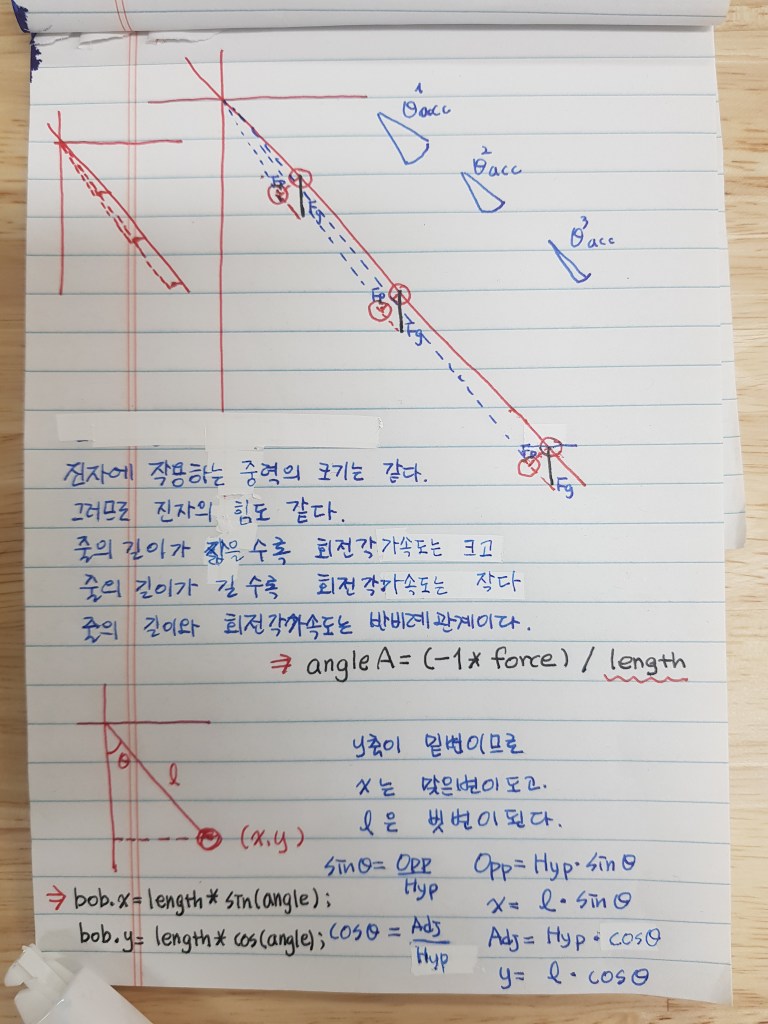 1
θacc
2
θacc
3
θacc
Fp
Fg
Fp
Fg
Fp
Fg
진자에 작용하는 중력의 크기는 같다.
그러므로 진자의 힘도 같다.
줄의 길이가 짧을 수록 회전각가속도는 크고
줄의 길이가 길 수록 회전각가속도는 작다
줄의 길이와 회전각가속도는 반비례관계이다.
⇒ angleA = (-1 * force) / length
θ
l
(x,y)
y축이 밑변이므로
x는 맞은변이 되고.
l은 빗변이 된다.
sinθ = Opp/Hyp Opp = Hyp · sinθ
⇒ bob.x = length * sin(angle); x = l · sinθ
bob.y = length * cos(angle); cosθ = Adj/Hyp Adj = Hyp · cosθ
y = l · cosθ